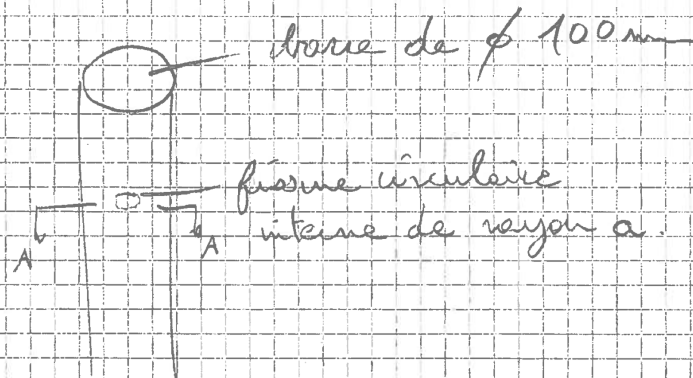 barre de ϕ 100 mm
fissure circulaire
interne de rayon a.
A
A